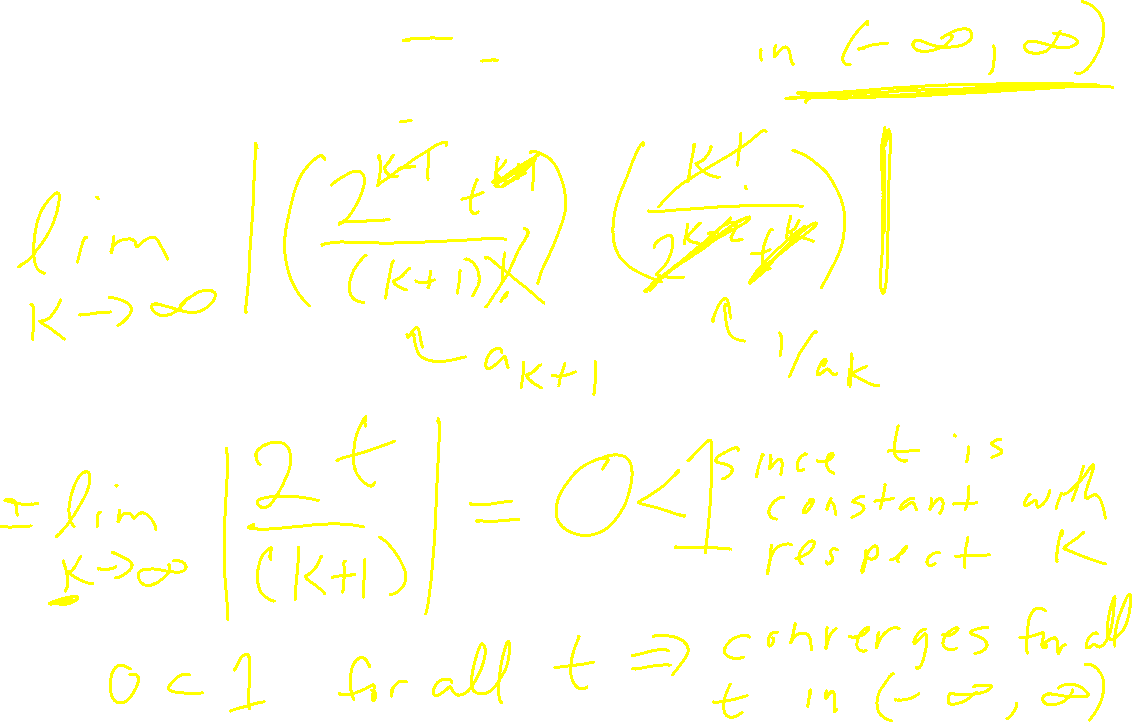 in (-∞, ∞)
lim k→∞ |(2^{k+1} t^{k+1} / (k+1)!) (k! / 2^k t^k)|
a_{k+1} 1/a_k
= lim k→∞ |2t / (k+1)| = 0 < 1 since t is
constant with
respect K
0 < 1 for all t ⇒ converges for all
t in (-∞, ∞)